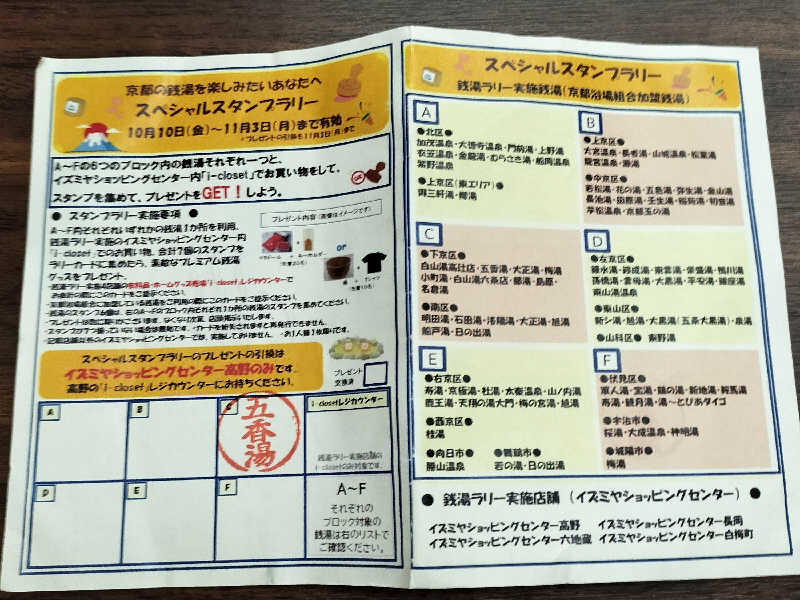 京都の銭湯を楽しみたいあなたへ
スペシャルスタンプラリー
10月10日(金)～11月3日(月)まで有効
A～Fの6つのブロック内の銭湯それぞれ一つと、
イズミヤショッピングセンター内「i-closet」でお買い物をして、
スタンプを集めて、プレゼントをGET！しよう。
● スタンプラリー実施要項 ●
A～F内それぞれいずれかの銭湯1カ所を利用、
銭湯ラリー実施のイズミヤショッピングセンター内
「i-closet」でのお買い物、合計7個のスタンプを
ラリーカードに集めたら、素敵なプレミアム銭湯
グッズをプレゼント。
プレゼント内容
or
スペシャルスタンプラリーのプレゼントの引換は
イズミヤショッピングセンター高野のみです。
高野の「i-closet」レジカウンターにお持ちください。
プレゼント
交換済
A
B
C
五香湯
i-closetレジカウンター
銭湯ラリー実施店舗の
i-closetのみ対象です。
D
E
F
A～F
それぞれの
ブロック対象の
銭湯は右のリストで
ご確認ください。
スペシャルスタンプラリー
銭湯ラリー実施銭湯(京都浴場組合加盟銭湯)
A
●北区●
加茂湯温泉・大徳寺温泉・門前湯・上野湯
衣笠温泉・金龍湯・むらさき湯・船岡温泉
紫野温泉
●上京区(東エリア)●
御三軒湯・柳湯
B
●上京区●
大宮温泉・長者湯・山城温泉・松葉湯
龍宮温泉・源湯
●中京区●
若松湯・花の湯・五色湯・弥生湯・金山湯
初音湯
京都玉の湯
C
●下京区●
白山湯高辻店・五香湯・大正湯・梅湯
小町湯・白山湯六条店・都湯・島原
名倉湯
●南区●
明田湯・石田湯・大正湯・旭湯
船戸湯・日の出湯
D
●左京区●
銀水湯・東雲湯・栄盛湯・鴨川湯
孫橋湯・雲母湯・大黒湯・平安湯・銀座湯
東山湯温泉
●東山区●
新シ湯・旭湯・大黒湯(五条大黒湯)・泉湯
●山科区● 東野湯
E
●右京区●
寿湯・京極湯・杜湯・太秦温泉・山ノ内湯
鹿王湯・天翔の湯大門・梅の宮湯・旭湯
●西京区●
桂湯
●向日市●
勝山温泉
●舞鶴市●
若の湯・日の出湯
F
●伏見区●
軍人湯・宝湯・鞍馬湯
寿湯・観月湯・湯～とぴあダイゴ
●宇治市●
桜湯・大成温泉・神明湯
●城陽市●
梅湯
● 銭湯ラリー実施店舗 (イズミヤショッピングセンター) ●
イズミヤショッピングセンター高野 イズミヤショッピングセンター長岡
イズミヤショッピングセンター六地蔵 イズミヤショッピングセンター白梅町